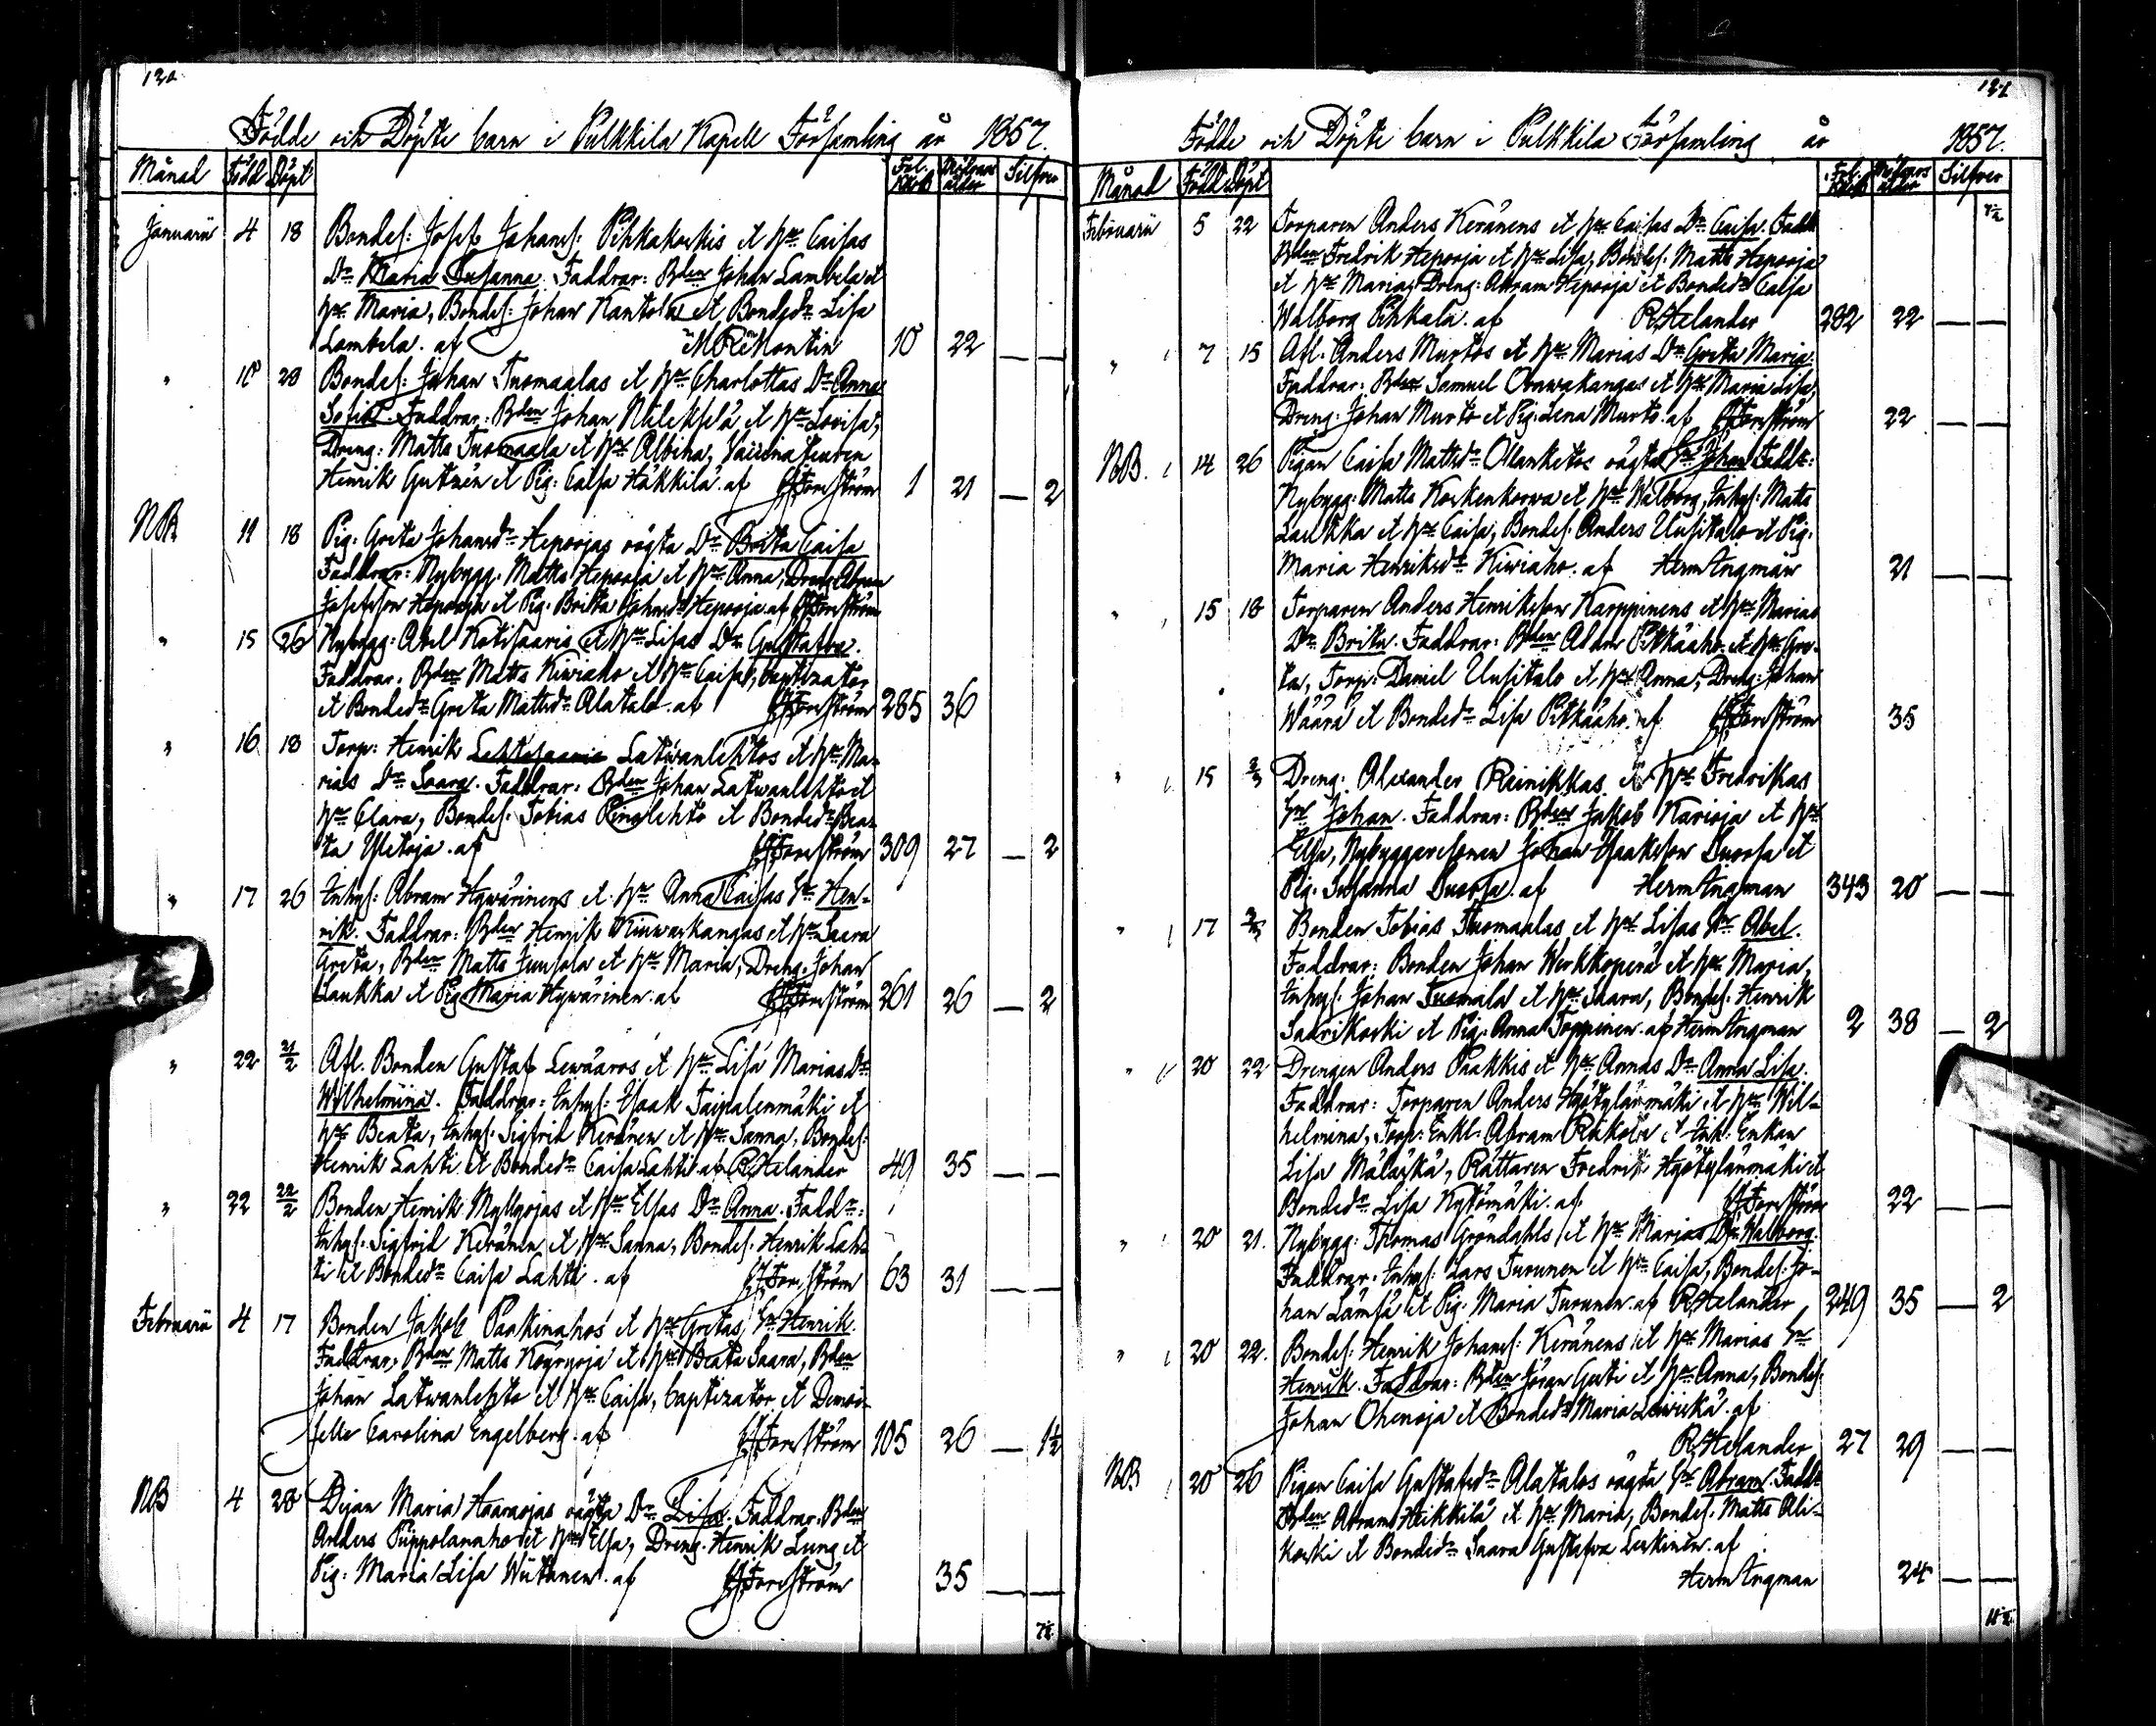 120
Födde och Döpte barn i Pulkkila Kapell Församling år 1857.
Månad Född Döpt Fol. Kkrb Modrens ålder Silfver
Januarii 4 18 Bondes: Josef Johans: Pihkakoskis et h:u Caisas
D:r Maria Susanna. Faddrar: Bden Johan Lambela et
h:u Maria, Bondes: Johan Kantola et Bonded:r Lisa
Lambela. af Montin 10 22 — —
" 10 28 Bondes: Johan Tuomaalas et h:u Charlottas D:r Anna
Sofia. Faddrar: Bden Johan et h:u Lovisa,
Dreng: Matts Tuomaala et h:u Albina,
Henrik Gutzén et Pig: Caisa Häkkilä. af Forsström 1 21 — 2
NB 11 18 Pig: Greta Johansd:r Heporjas oägta D:r Brita Caisa
Faddrar: Nybygg. Matts Heporja et h:u Anna, Dreng Abram
Josefsson Heporja et Pig. Britta Johansd:r Heporja af Forsström
" 15 26 Nybygg: Abel Kotisaaris et h:u Lisas D:r Gustafva.
Faddrar. Bden Matts Kiviaho et h:u Caisa, baptizator
et Bonded:r Greta Mattsd:r Alatalo. af Forsström 285 36
" 16 18 Torp: Henrik Latwanlehtos et h:u Ma-
rias D:r Saara. Faddrar: Bden Johan Latwanlehto et
h:u Clara, Bondes. Tobias Pinolehto et Bonded:r Bea-
ta Uletoja. af Forsström 309 27 — 2
" 17 26 Inhys: Abram Hywärinens et h:u Anna Caisas S:n Hen-
rik. Faddrar: Bden Henrik et h:u Saara
Greta, Bden Matts Junsola et h:u Maria, Dreng. Johan
Laukka et Pig Maria Hywärinen. af Forsström 261 26 — 2
" 22 21/2 Afl. Bonden Gustaf Lewäaros et h:u Lisa Marias D:r
Wilhelmina. Faddrar: Inhys: Isaak Taipalenmäki et
h:u Beata, Inhys. Sigfrid Keränen et h:u Sanna, Bondes:
Henrik Lahti et Bonded:r Caisa Lahti af R. Helander 49 35 — —
" 22 22/2 Bonden Henrik Myllyojas et h:u Elsas D:r Anna. Fadd:r:
Inhys. Sigfrid Keränen et h:u Sanna, Bondes. Henrik Lah-
ti et Bonded:r Caisa Lahti. af Forsström 63 31 — —
Februarii 4 17 Bonden Jakob Paakinahos et h:u Gretas, S:n Henrik.
Faddrar, Bden Matts Köyryoja et h:u Beata Saara, Bden
Johan Latwanlehto et h:u Caisa, baptizator et Demoi-
selle Carolina Engelberg. af Forsström 105 26 — 1½
NB 4 28 Pigan Maria Haaraojas oägta D:r Lisa. Faddrar. Bden
Anders Piippolanaho et h:u Elsa, Dreng. Henrik Lung et
Pig: Maria Lisa Wiitanen. af Forsström 35 — —
7½
121
Födde och Döpte barn i Pulkkila Församling år 1857.
Månad Född Döpt Fol. Kkrb Modrens ålder Silfver
7½
Februarii 5 22 Torparen Anders Keränens et h:u Caisas D:r Caisa. Fadd:r
Bden Fredrik Heporja et h:u Lisa, Bondes. Matts Heporja
et h:u Maria, Dreng: Abram Heporja et Bonded:r Caisa
Walborg Pihkala. af R. Helander 282 22 — —
" 7 15 Afl. Anders Murtos et h:u Marias D:r Greta Maria.
Faddrar: Bden Samuel et h:u Maria Lisa,
Dreng: Johan Murto et Pig. Lena Murto. af Forsström 22 — —
NB. 14 26 Pigan Caisa Mattsd:r Manketos oägta S:n Johan Fadd:r:
Nybygg: Matts Koskenkorwa et h:u Walborg, Inhys: Matts
et h:u Caisa, Bondes. Anders Uusitalo et Pig.
Maria Henriksd:r Kiwiaho. af Herm Ingman 21 — —
" 15 18 Torparen Anders Henriksson Karppinens et h:u Marias
D:r Brita. Faddrar: Bden Adam Pitkäaho et h:u Gre-
ta, Torp: Daniel Uusitalo et h:u Anna, Dreng: Johan
Wäärä et Bonded:r Lisa Pitkäaho. af Forsström 35
" 15 2/3 Dreng: Alexander Reinikkas et h:u Fredrikas
S:n Johan. Faddrar: Bden Jakob Karioja et h:u
Elsa, Nybyggaresonen Johan Isaksson Suorsa et
Pig. Susanna Suorsa. af Herm Ingman 343 20 — —
" 17 2/3 Bonden Tobias Tuomaalas et h:u Lisas S:n Abel.
Faddrar: Bonden Johan Werkkoperä et h:u Maria,
Inhys. Johan Tuomala et h:u Saara, Bondes. Henrik
Saarikoski et Pig: Anna Toppinen. af Herm Ingman 2 38 — 2
" 20 22 Drengen Anders Paakkis et h:u Annas D:r Anna Lisa.
Faddrar: Torparen Anders Hyötylänmäki et h:u Wil-
helmina, Torp: Enkl. Abram et Inh: Enkan
Lisa Mäläskä, Rättaren Fredrik Hyötylänmäki et
Bonded:r Lisa Kytömäki. af Forsström 22 — —
" 20 21. Nybygg: Thomas Gröndahls et h:u Marias D:r Walborg.
Faddrar. Inhys: Lars Turunen et h:u Caisa, Bondes. Jo-
han Lämsä et Pig: Maria Turunen. af R. Helander 249 35 — 2
" 20 22. Bondes: Henrik Johans: Keränens et h:u Marias S:n
Henrik. Faddrar: Bden Jöran Guti et h:u Anna, Bondes.
Johan Ohenoja et Bonded:r Maria Leiviskä. af
R. Helander 27 29 — —
NB. 20 26 Pigan Caisa Gustafsd:r Alatalos oägta S:n Abram. Fadd:r
Bden Abram Heikkilä et h:u Maria, Bondes. Matts Ali-
koski et Bonded:r Saara Gustafva Leskinen. af
Herm Ingman 24 — —
11½